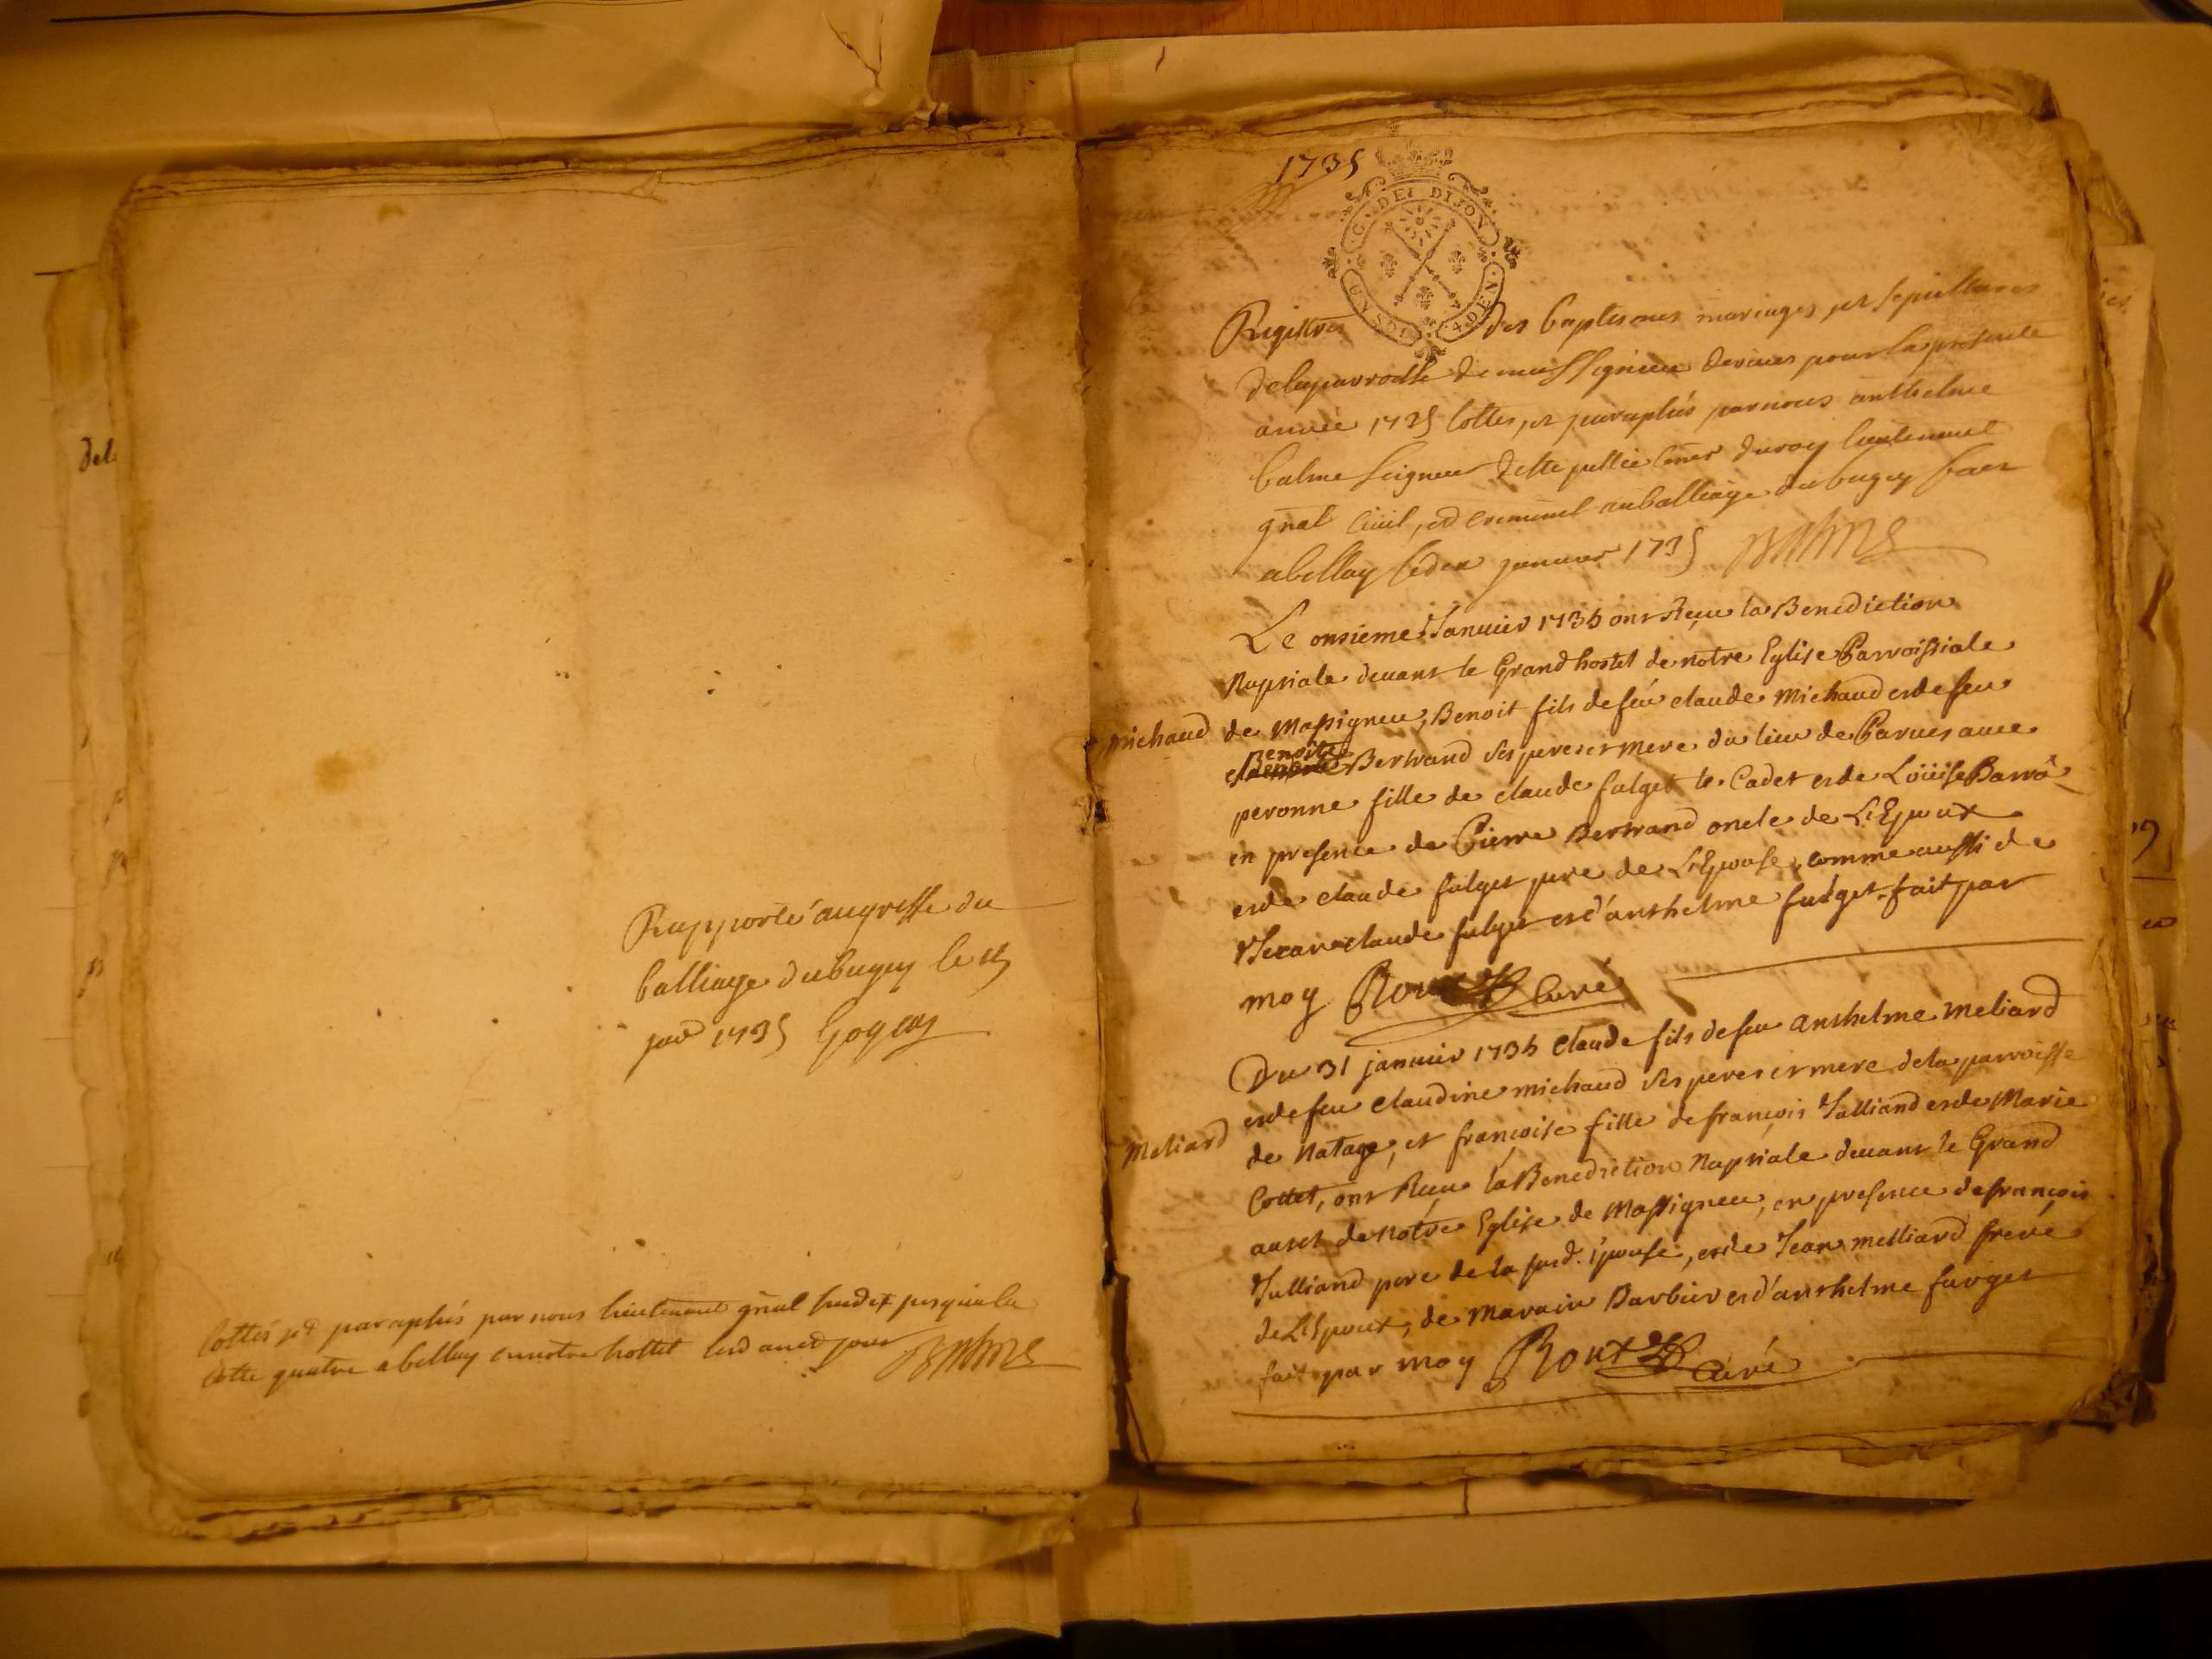 Rapporté au greffe du
balliage du bugey le
1735
Cottés et paraphés par nous lieutenant gñal susdit jusqu'a la
cotte quatre a bellay en notre hottel lesd an et jour Balme
1735
G. DEI DIJON
4. DEN.
Registres des baptesmes mariages et sepultures
de la parroisse de massignieu derives pour la presente
année 1735 cottés et paraphés par nous anthelme
balme seigneur de ste jullie coner du roy lieutenant
gnal civil, et criminel au balliage du bugey fait
a bellay le janvier 1735 Balme
Le onsieme Janvier 1735 ont Reçeu la Benediction
Nuptiale devant le Grand hostel de notre Eglise Parroissiale
michaud
de Massigneu, Benoit fils de feu claude Michaud et de feu
Benoite
Bertrand ses peres et mere du lieu de Parves avec
peronne fille de claude fulget le Cadet et de Loüise Barrô
en presence de Pierre Bertrand oncle de L'Epoux
et de claude fulget pere de L'Epouse, comme aussi de
claude fulget et d'anthelme fulget. fait par
moy Roux Curé
Du 31 janvier 1735 Claude fils de feu anthelme meliard
et de feu claudine michaud ses peres et mere de la parroisse
Meliard
de Natage, et françoise fille de françois Julliand et de Marie
Cottet, ont Reçeu la Benediction Nuptiale devant le Grand
autel de notre Eglise de Massigneu, en presence de françois
Julliand pere de la susd. Epouse, et de Jean melliard frere
de L'Epoux, de Marain Barbier et d'anthelme furget
fait par moy Roux Curé